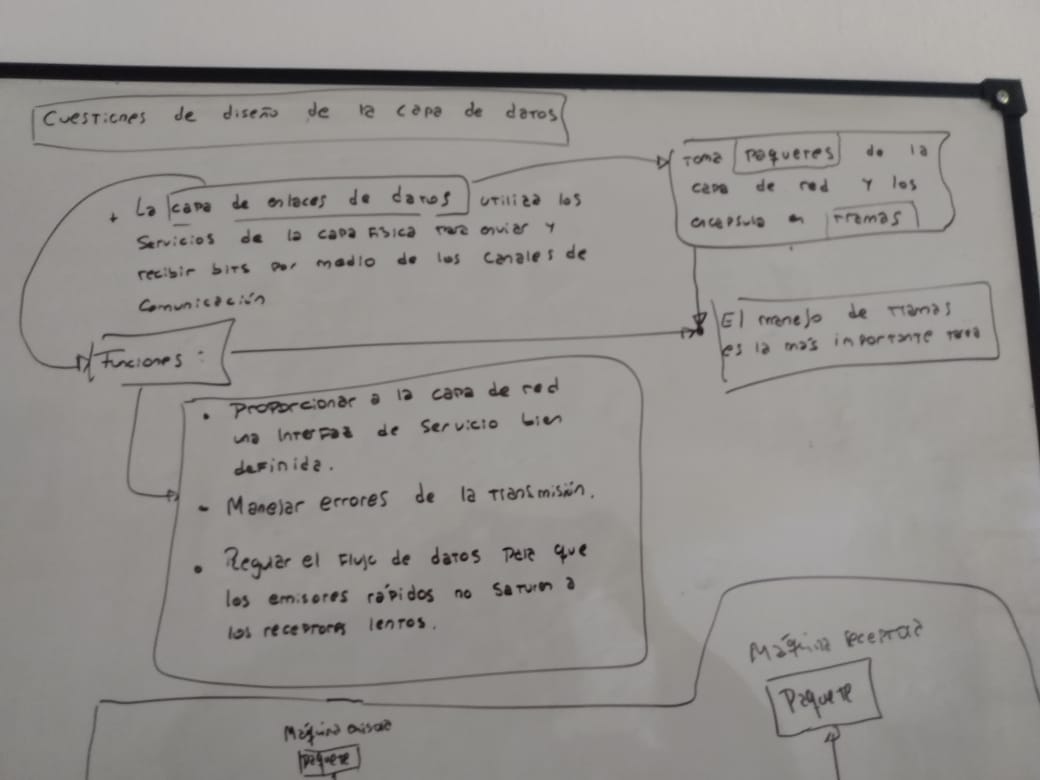 Cuestiones de diseño de la capa de datos
+ La capa de enlaces de datos utiliza los
servicios de la capa física para enviar y
recibir bits por medio de los canales de
comunicación
Toma paquetes de la
capa de red y los
encapsula en tramas
El manejo de tramas
es la más importante tarea
Funciones:
• Proporcionar a la capa de red
una interfaz de servicio bien
definida.
• Manejar errores de la transmisión.
• Regular el flujo de datos para que
los emisores rápidos no saturen a
los receptores lentos.
Máquina emisora
Paquete
Máquina receptora
Paquete